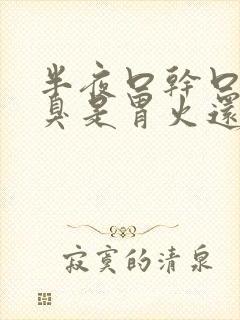 半夜口幹口
真是冒火還
寂寞的清泉